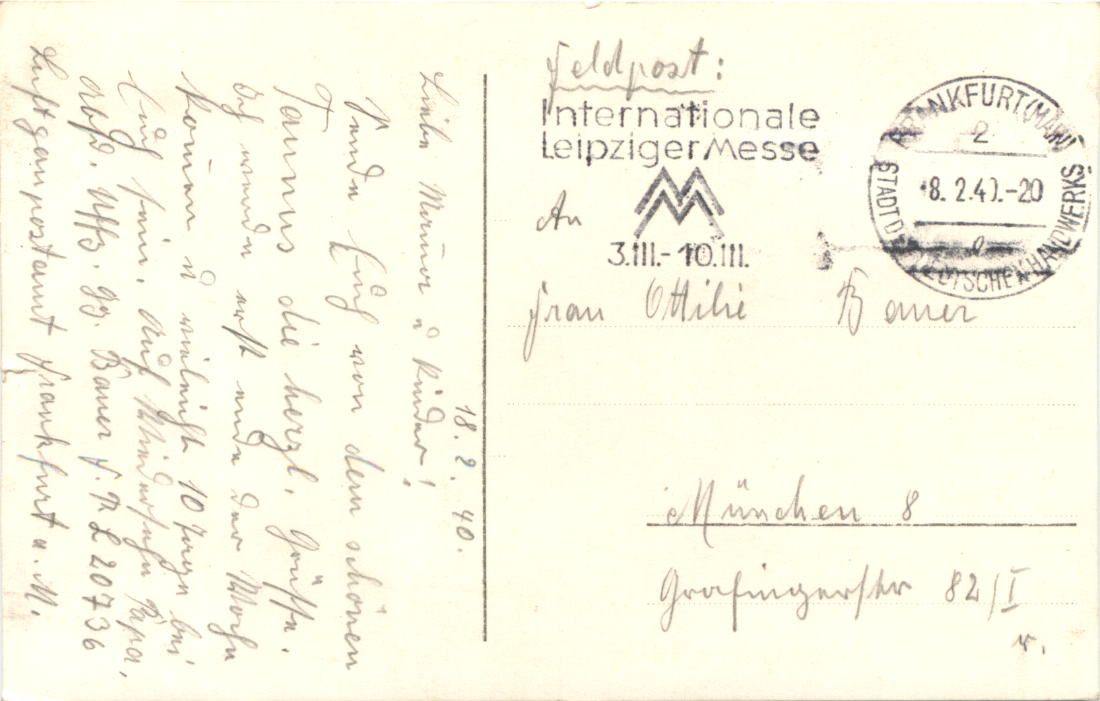 18. 2. 40.
Liebe Mama u Kinder!
Sende Euch von dem schönen
Taunus die herzl. Grüsse.
Ich werde erst ende der Woche
kommen u vieleicht 10 Tage bei
Euch sein. Auf Wiedersehn Papa.
Abs. Uffz. Gg. Bauer F. N L 20736
Luftgaupostamt Frankfurt a. M.
Feldpost:
Internationale
Leipziger Messe
3.III.-10.III.
FRANKFURT (MAIN)
2
8.2.40.-20
STADT DES DEUTSCHEN HANDWERKS
An
Frau Ottilie Bauer
München 8
Grafingerstr 82/I
r.